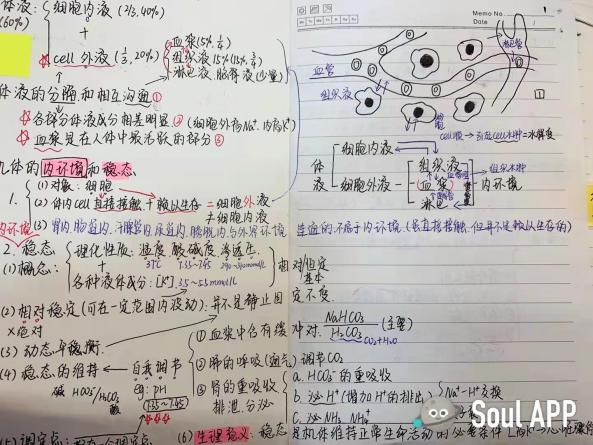 体液: 细胞内液 (2/3, 40%)
(60%) +
cell 外液 (1/3, 20%)
血浆 (5%, 1/4)
组织液 15% (15%, 3/4)
淋巴液、脑脊液 (少量)
体液的分隔和相互沟通 ①
各部分体液成分相差明显 ② (细胞外高Na⁺, 内高K⁺)
血浆是在人体中最活跃的部分 ③
机体的内环境和稳态
1. (1) 对象: 细胞
(2) 体内cell直接接触 + 赖以生存 = 细胞外液
≠ 细胞内液
内环境
(3) 胃内、肠道内、汗腺管内、尿道内、膀胱内与外界环境
2. 稳态
(1) 概念:
理化性质: 温度、酸碱度、渗透压
37℃ 7.35~7.45
+
各种液体成分: [K⁺] 3.5~5.5mmol/L
相对恒定
基本
(2) 相对稳定 (可在一定范围内波动): 并不是静止固定不变
×绝对
(3) 动态平衡
(4) 稳态的维持
自我调节
碱 HCO₃⁻/H₂CO₃ 酸
例: pH
7.35~7.45
① 血浆中含有缓冲对. NaHCO₃/H₂CO₃ (主要)
CO₂+H₂O
② 肺的呼吸 (通气) 调节CO₂
③ 肾的重吸收
排泄、分泌
a. HCO₃⁻的重吸收
b. 泌H⁺ (增加H⁺的排出) Na⁺-H⁺交换
c. 泌NH₃、NH₄⁺
(5) 调定点:
(6) 生理意义: 稳态是机体维持正常生命活动的必要条件
Memo No.
Date
Mo Tu We Th Fr Sa Su
血管
组织液
淋巴管
细胞
1
体液
细胞内液
细胞外液
组织液
(血浆)
淋巴
内环境
组织水肿
生理的, 不属于内环境. (是直接接触, 但并不是赖以生存的)
SoulAPP